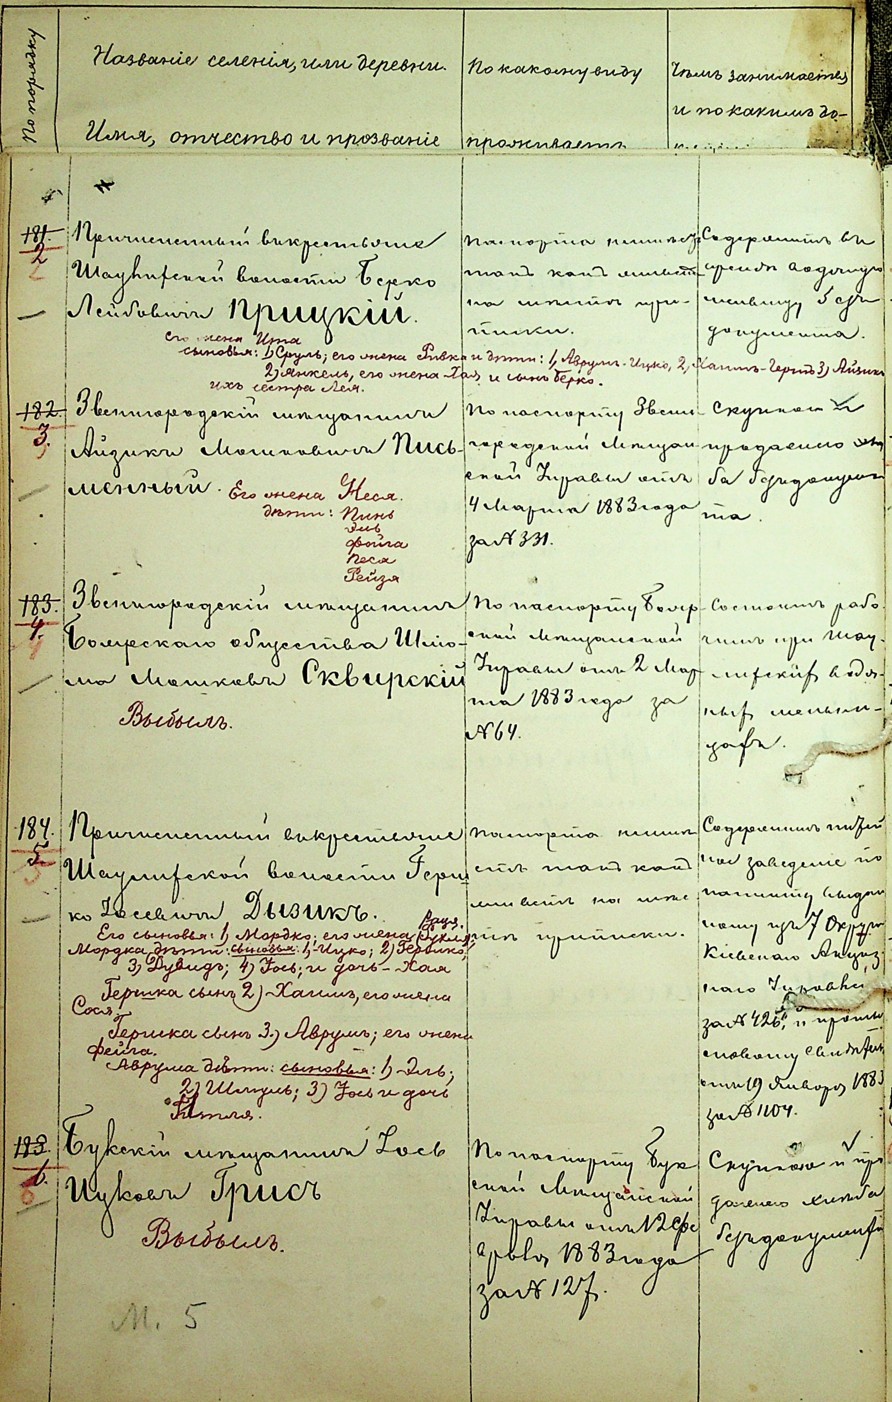 По порядку
Названіе селенія, или деревни.
Имя, отчество и прозваніе
По какому виду
проживаетъ
Чѣмъ занимается
и по какимъ до-
181.
2
Причисленный въ крестьяне
волости Берко
Лейбовичъ Прицкій.
его жена Ита
сыновья: 1) Сруль; его жена Ривка и дѣти: 1) Аврумъ-Ицко, 2) Хаимъ-Гершъ 3) Айзикъ
2) Янкель, его жена Хая, и сынъ Берко.
ихъ сестра Лея.
паспорта
такъ какъ живетъ
на мѣстѣ при-
писки.
Содержитъ въ
арендѣ водяную
мельницу, безъ
документа.
182
3.
Звенигородскій мѣщанинъ
Айзикъ Мошковичъ Пись-
менный.
Его жена Неся.
дѣти: Пинь
Эль
Фейга
Песя
Рейзя
По паспорту Звени-
городской Мѣщан
ской Управы отъ
4 Марта 1883 года
за № 331.
Скупкою и
продажею хлѣ
ба безъ докумен
та.
183.
4.
Звенигородскій мѣщанинъ
Боярскаго общества Шлио-
ма Мошковъ Сквирскій
Выбылъ.
По паспорту Бояр-
ской Мѣщанской
Управы отъ 2 Мар
та 1883 года за
№ 64.
Состоитъ рабо-
чимъ при
водя-
ныхъ мельни-
цахъ.
184.
5
Причисленный въ крестьяне
волости Герш
ко Іосевичъ Дызикъ.
Его сыновья: 1) Мордко; его жена
Мордка дѣти: сыновья: 1) Ицко; 2) Гершко;
3) Дувидъ; 4) Іось; и дочь – Хая
Гершка сынъ 2) Хаимъ, его жена
Сося.
Гершка сынъ 3.) Аврумъ; его жена
Фейга.
Аврума дѣти: сыновья: 1) Эль;
2) Шмуль; 3) Іось и дочь
паспорта
такъ какъ
живетъ на мѣс
тѣ приписки.
Содержитъ питей
ное заведеніе по
патенту выдан
ному изъ 7 Округа
Кіевскаго Акциз-
наго Управленія
за № 426, и промы
словому свидѣтель
отъ 19 Января 1883
за № 1104.
185.
6.
Букскій мѣщанинъ Іось
Ицковъ Грисъ
Выбылъ.
По паспорту Бук
ской Мѣщанской
Управы отъ 12 Фе
враля 1883 года
за № 127.
Скупкою и про
дажею хлѣба
безъ документа
М. 5